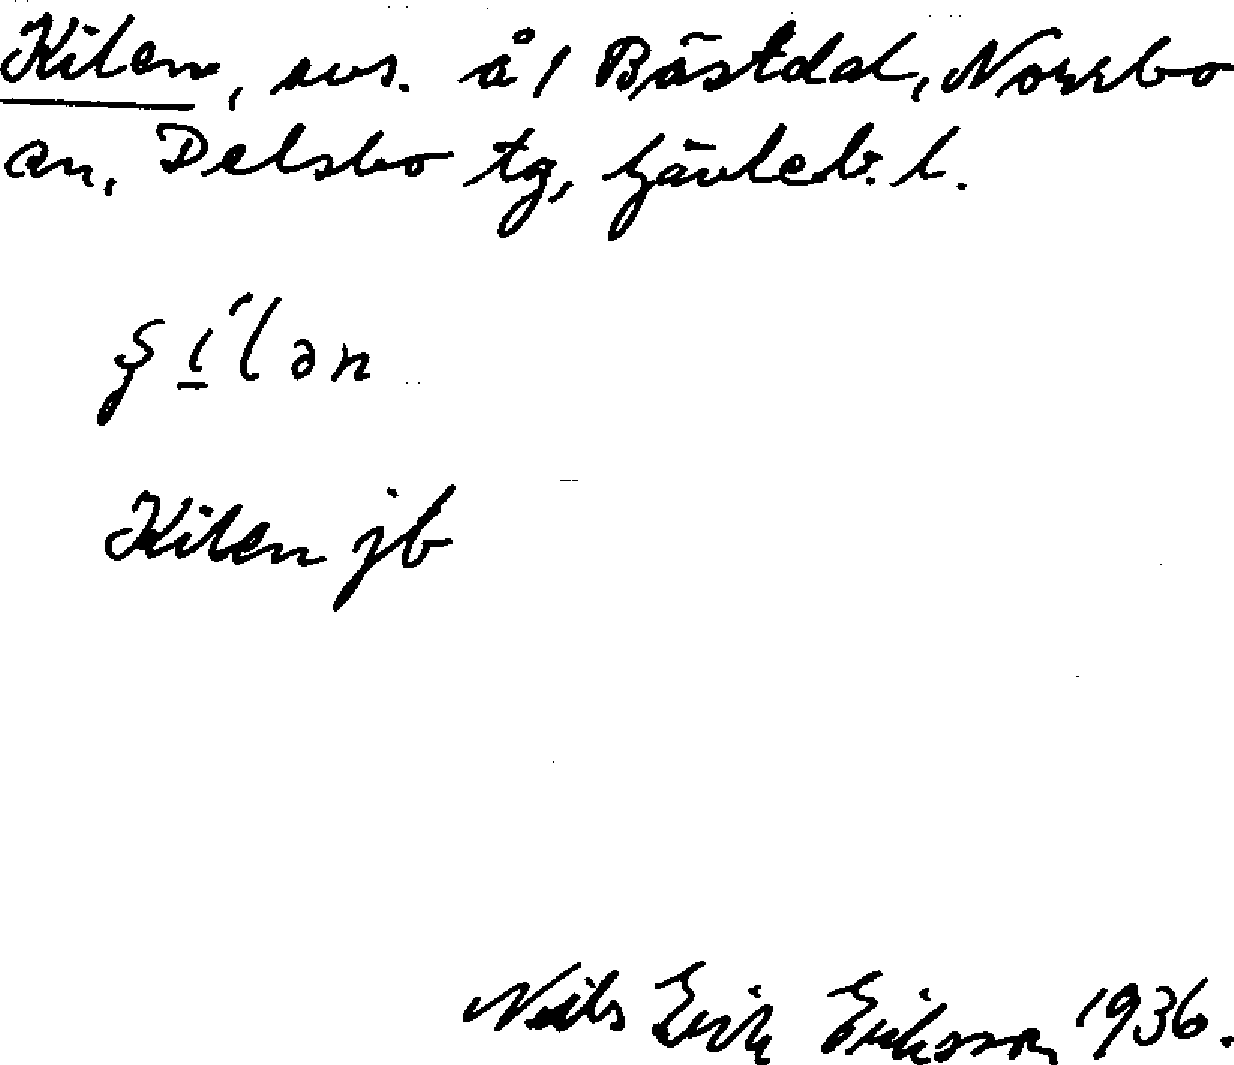 Kilen, avs. å 1 Bästdal, Norrbo
sn, Delsbo tg, Gävleb. l.
ʂi̱ ́lən
Kilen jb
Nils Erik Eriksson 1936.